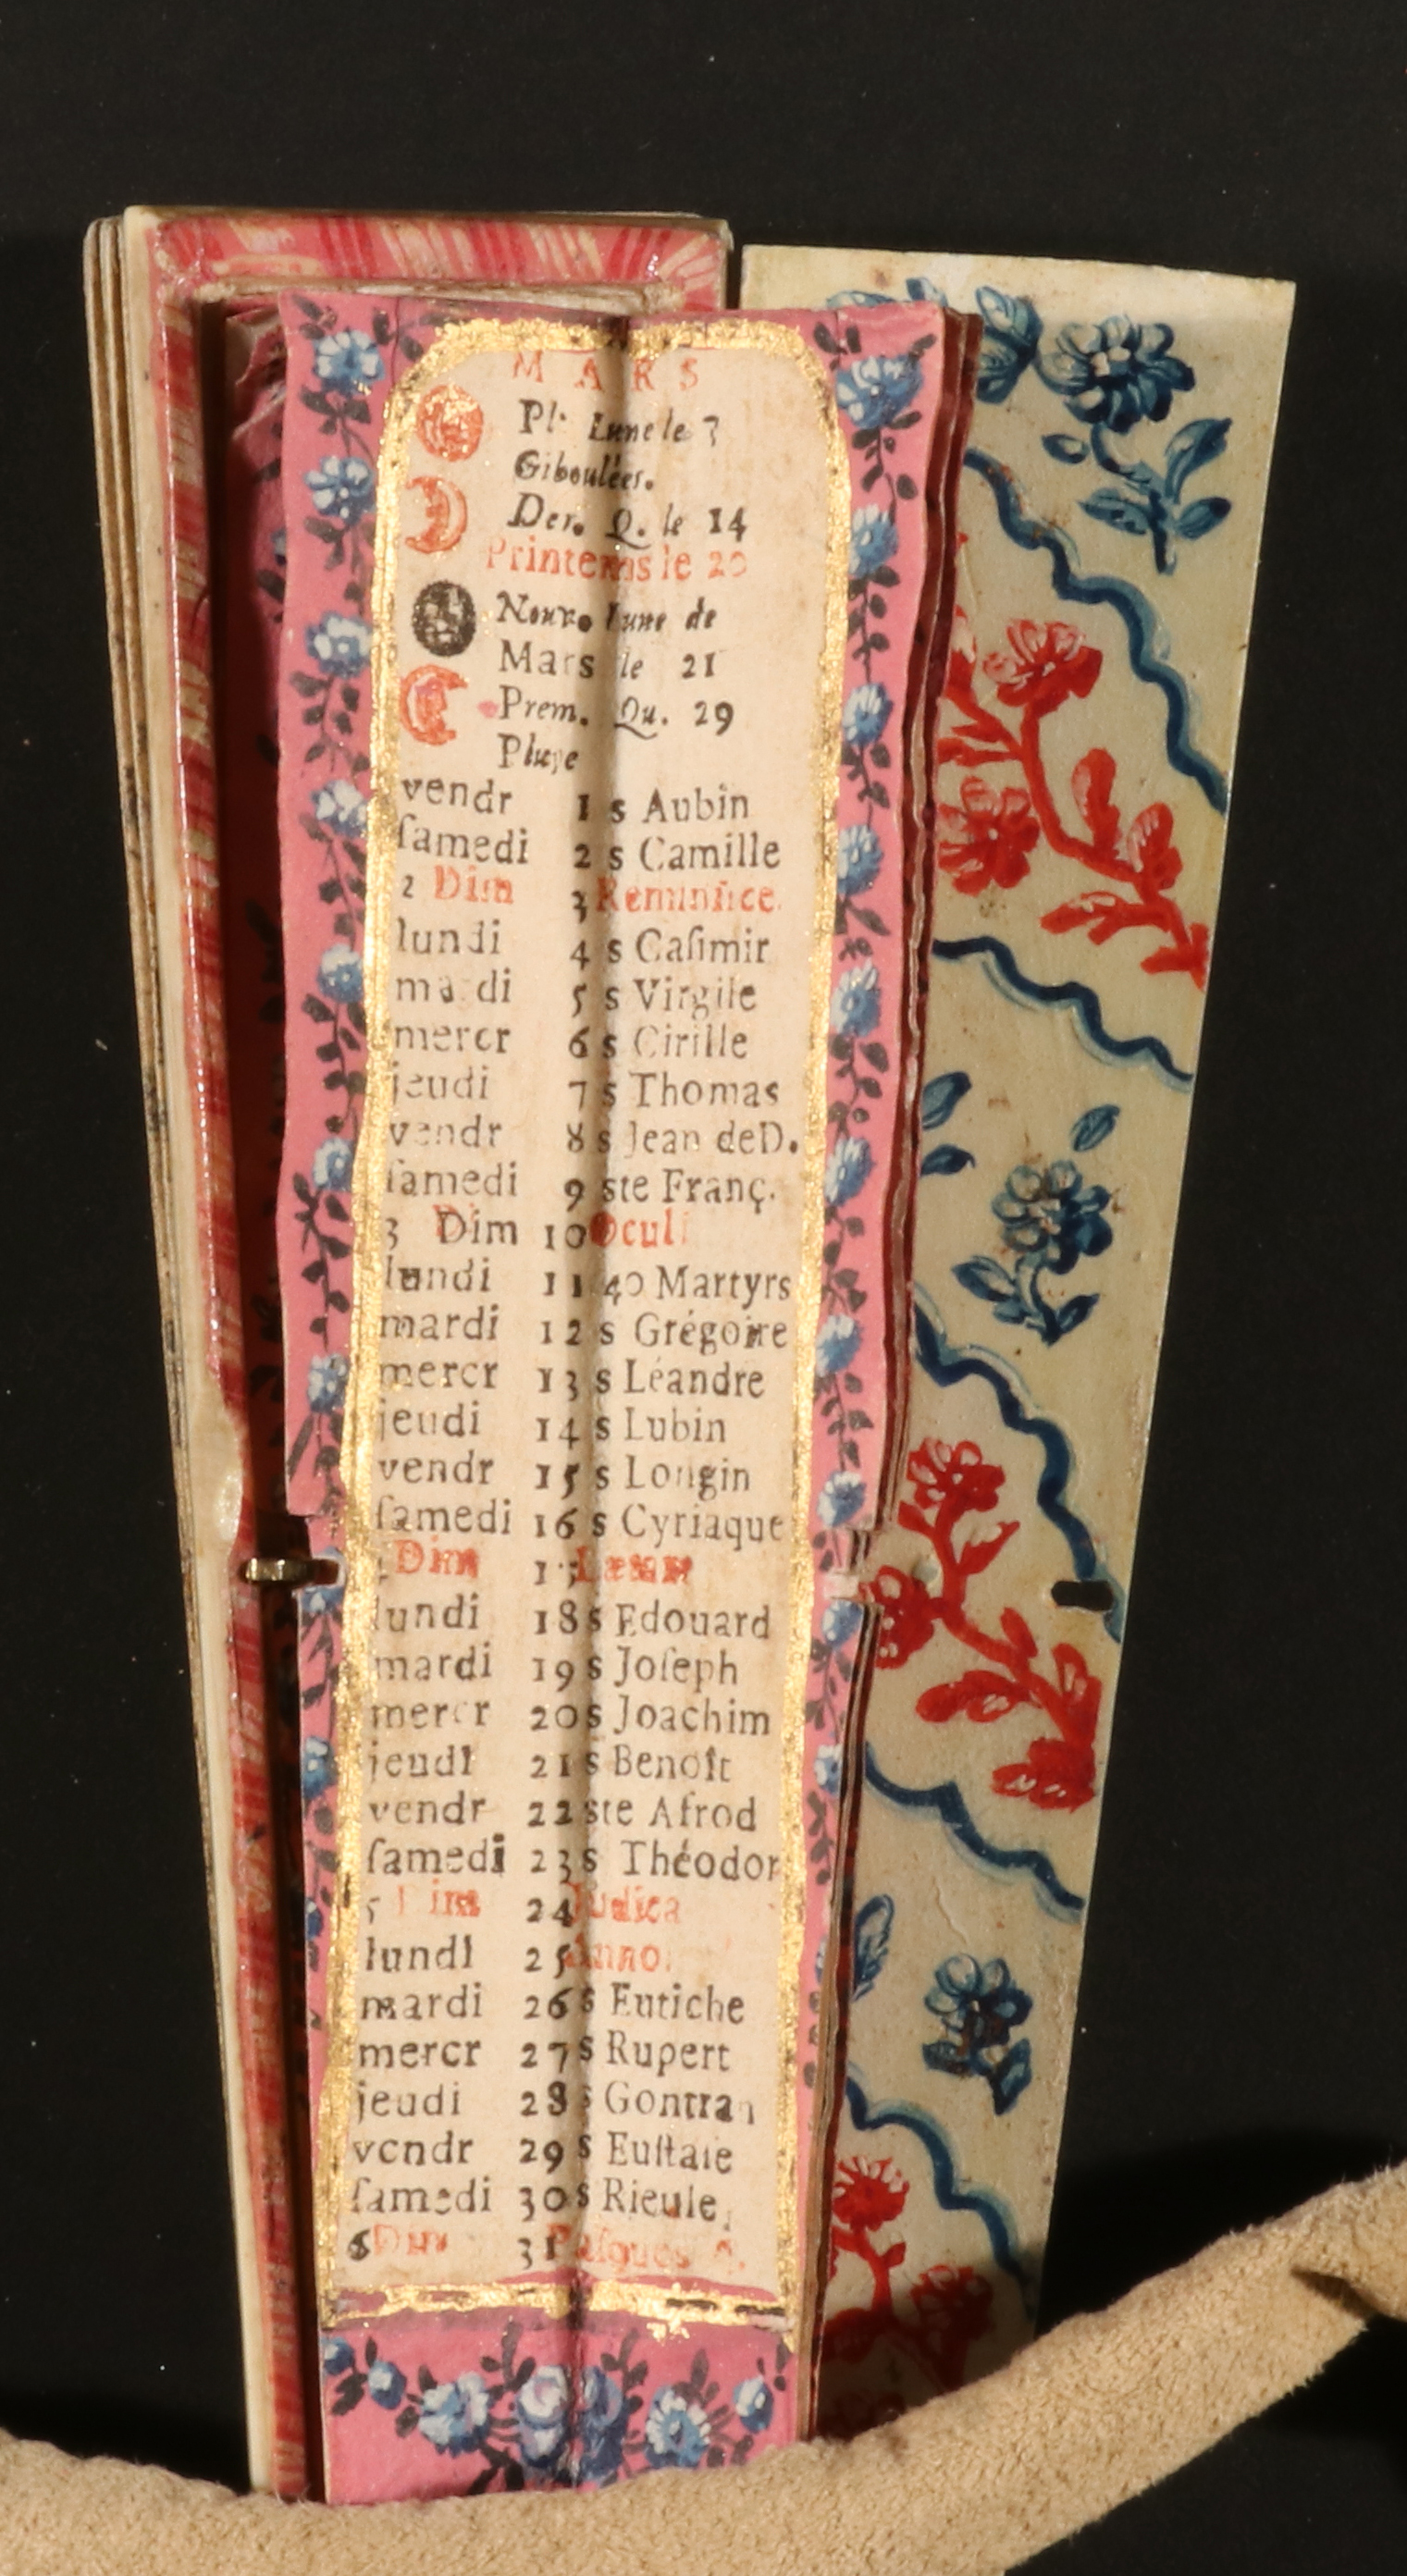 MARS
Pl. Lune le 3
Giboulées.
Der. Q. le 14
Printems le 20
Nouv. Lune de
Mars le 21
Prem. Qu. 29
Pluye
vendr 1 s Aubin
ſamedi 2 s Camille
2 Dim 3 Reminiſce.
lundi 4 s Caſimir
mardi 5 s Virgile
mercr 6 s Cirille
jeudi 7 s Thomas
vendr 8 s Jean deD.
ſamedi 9 ste Franç.
3 Dim 10 Oculi
lundi 11 40 Martyrs
mardi 12 s Grégoire
mercr 13 s Léandre
jeudi 14 s Lubin
vendr 15 s Longin
ſamedi 16 s Cyriaque
Dim 17
lundi 18 s Edouard
mardi 19 s Joſeph
mercr 20 s Joachim
jeudi 21 s Benoît
vendr 22 ste Afrod
ſamedi 23 s Théodor
5 Dim 24 Judica
lundi 25 Anno.
mardi 26 s Eutiche
mercr 27 s Rupert
jeudi 28 s Gontran
vendr 29 s Euſtaſe
ſamedi 30 s Rieule,
6 Dim 31 Paſques